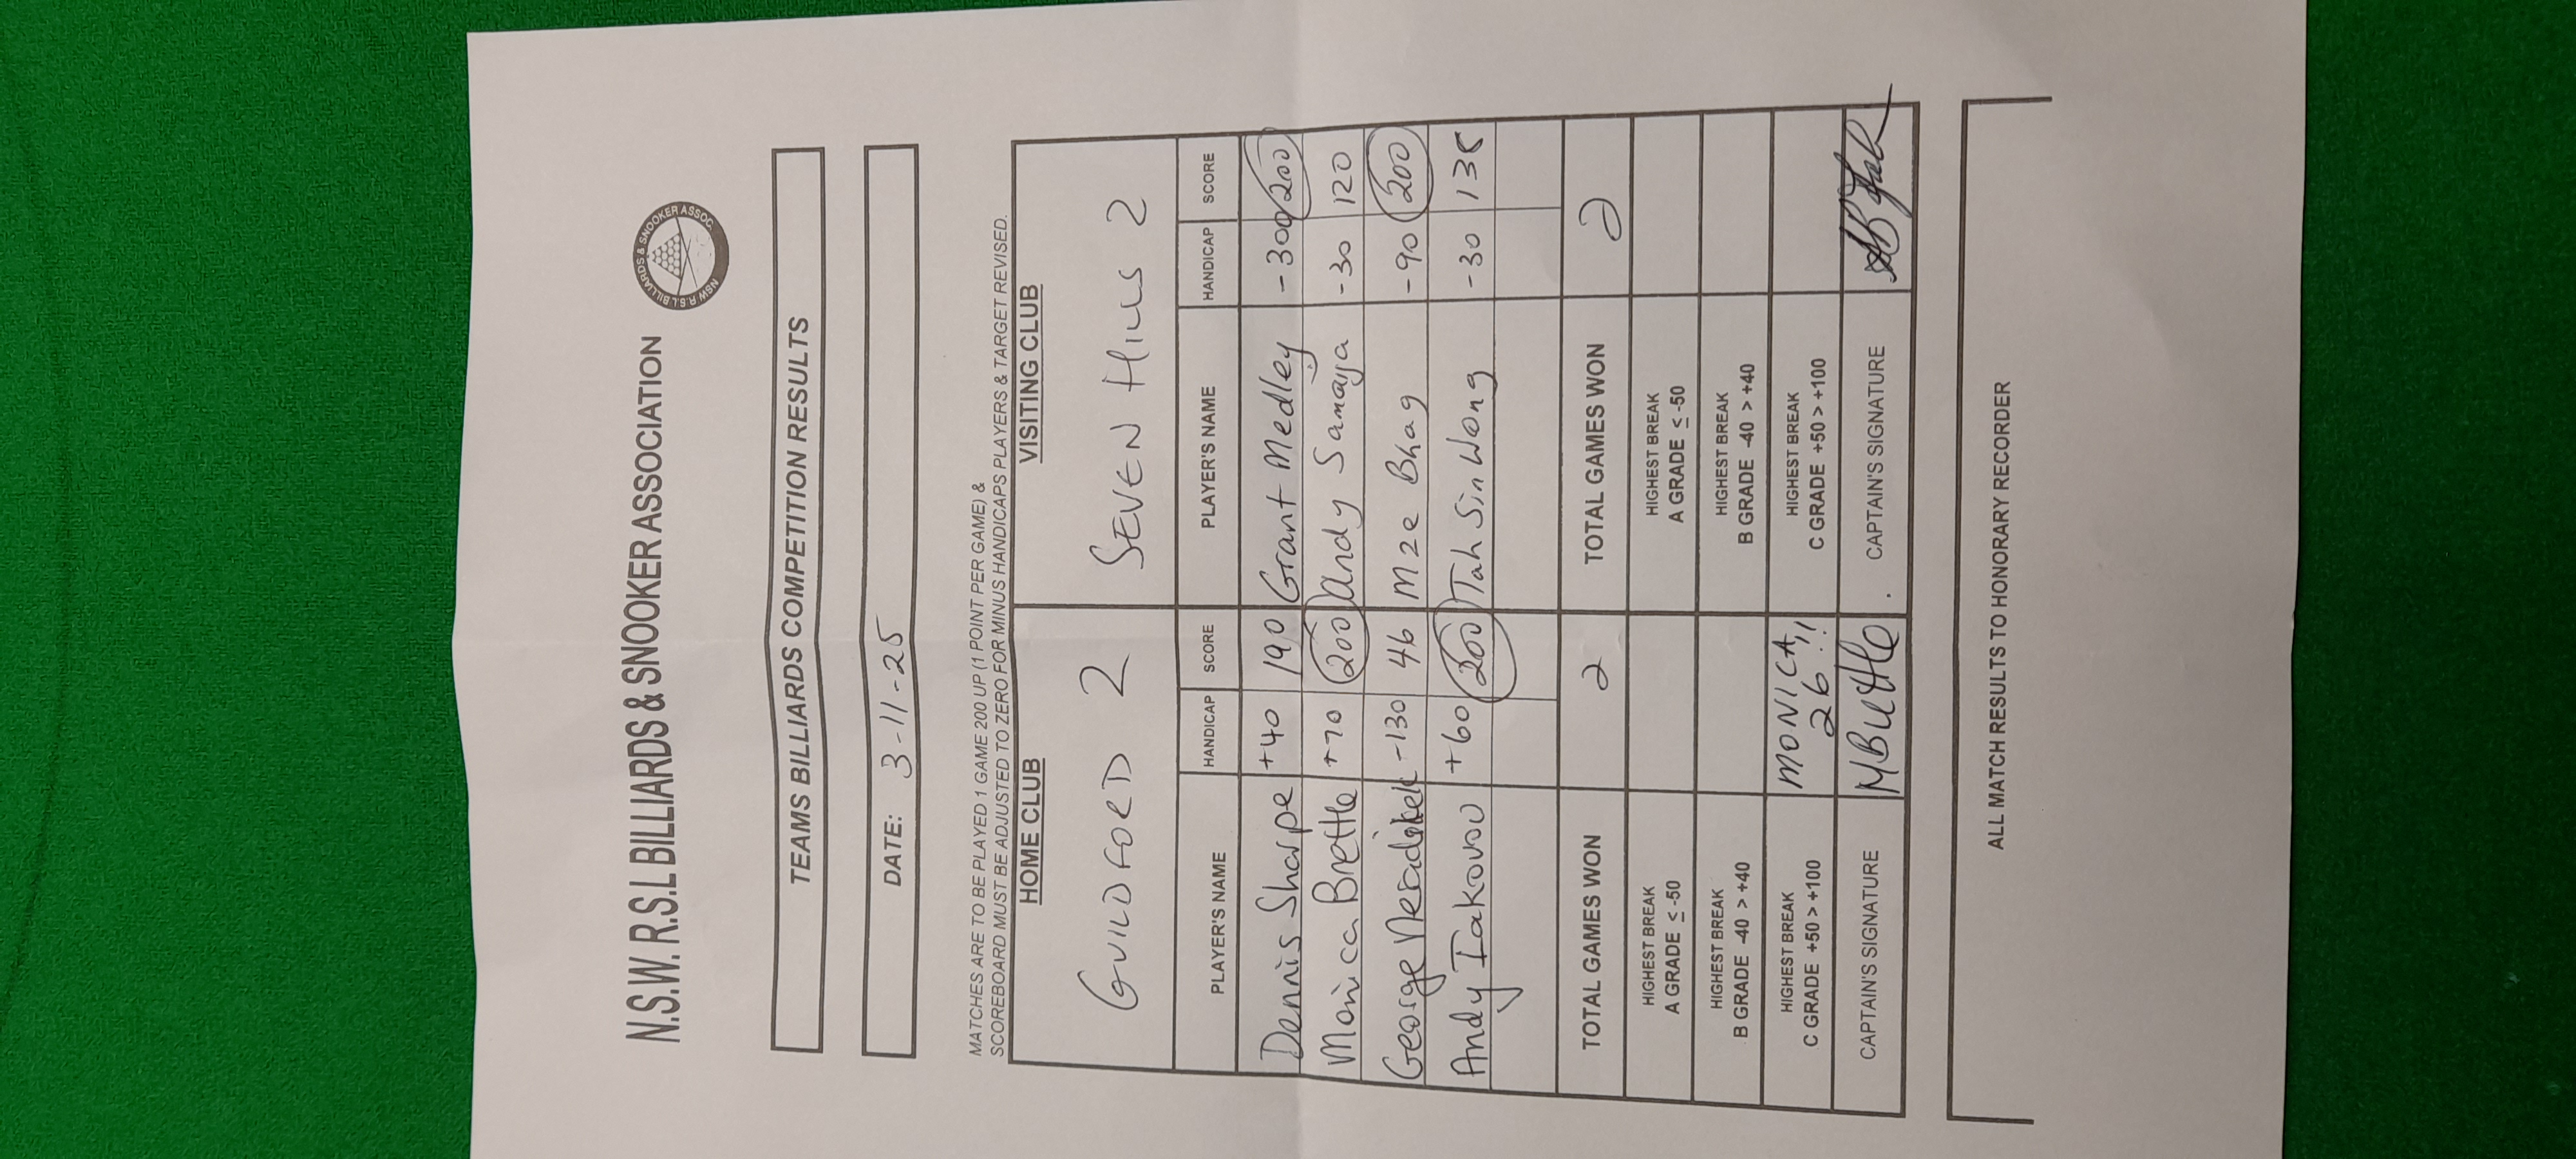 N.S.W. R.S.L BILLIARDS & SNOOKER ASSOCIATION
NSW R.S.L BILLIARDS & SNOOKER ASSOC.
TEAMS BILLIARDS COMPETITION RESULTS
DATE: 3-11-25
MATCHES ARE TO BE PLAYED 1 GAME 200 UP (1 POINT PER GAME) &
SCOREBOARD MUST BE ADJUSTED TO ZERO FOR MINUS HANDICAPS PLAYERS & TARGET REVISED.
HOME CLUB VISITING CLUB
GUILDFORD 2 SEVEN HILLS 2
PLAYER'S NAME HANDICAP SCORE PLAYER'S NAME HANDICAP SCORE
Dennis Sharpe +40 190 Grant Medley -300 200
Monica Brettle +70 200 Andy Samaya -30 120
George -130 46 Mze Bhag -90 200
Andy Iakovou +60 200 Tah Sin Wong -30 135
TOTAL GAMES WON 2 TOTAL GAMES WON 2
HIGHEST BREAK HIGHEST BREAK
A GRADE ≤ -50 A GRADE ≤ -50
HIGHEST BREAK HIGHEST BREAK
B GRADE -40 > +40 B GRADE -40 > +40
HIGHEST BREAK MONICA HIGHEST BREAK
C GRADE +50 > +100 26!! C GRADE +50 > +100
CAPTAIN'S SIGNATURE CAPTAIN'S SIGNATURE
ALL MATCH RESULTS TO HONORARY RECORDER